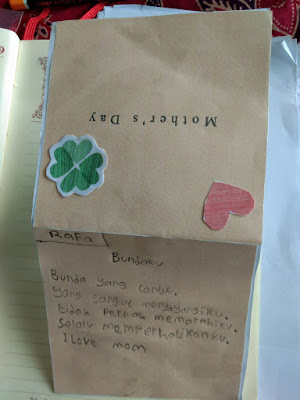 Mother's Day
Rafa
Bundaku
Bunda yang cantik.
Yang sangat menyayangiku.
tidak Pernah memarahiku.
Selalu memperhatikanku.
I love mom